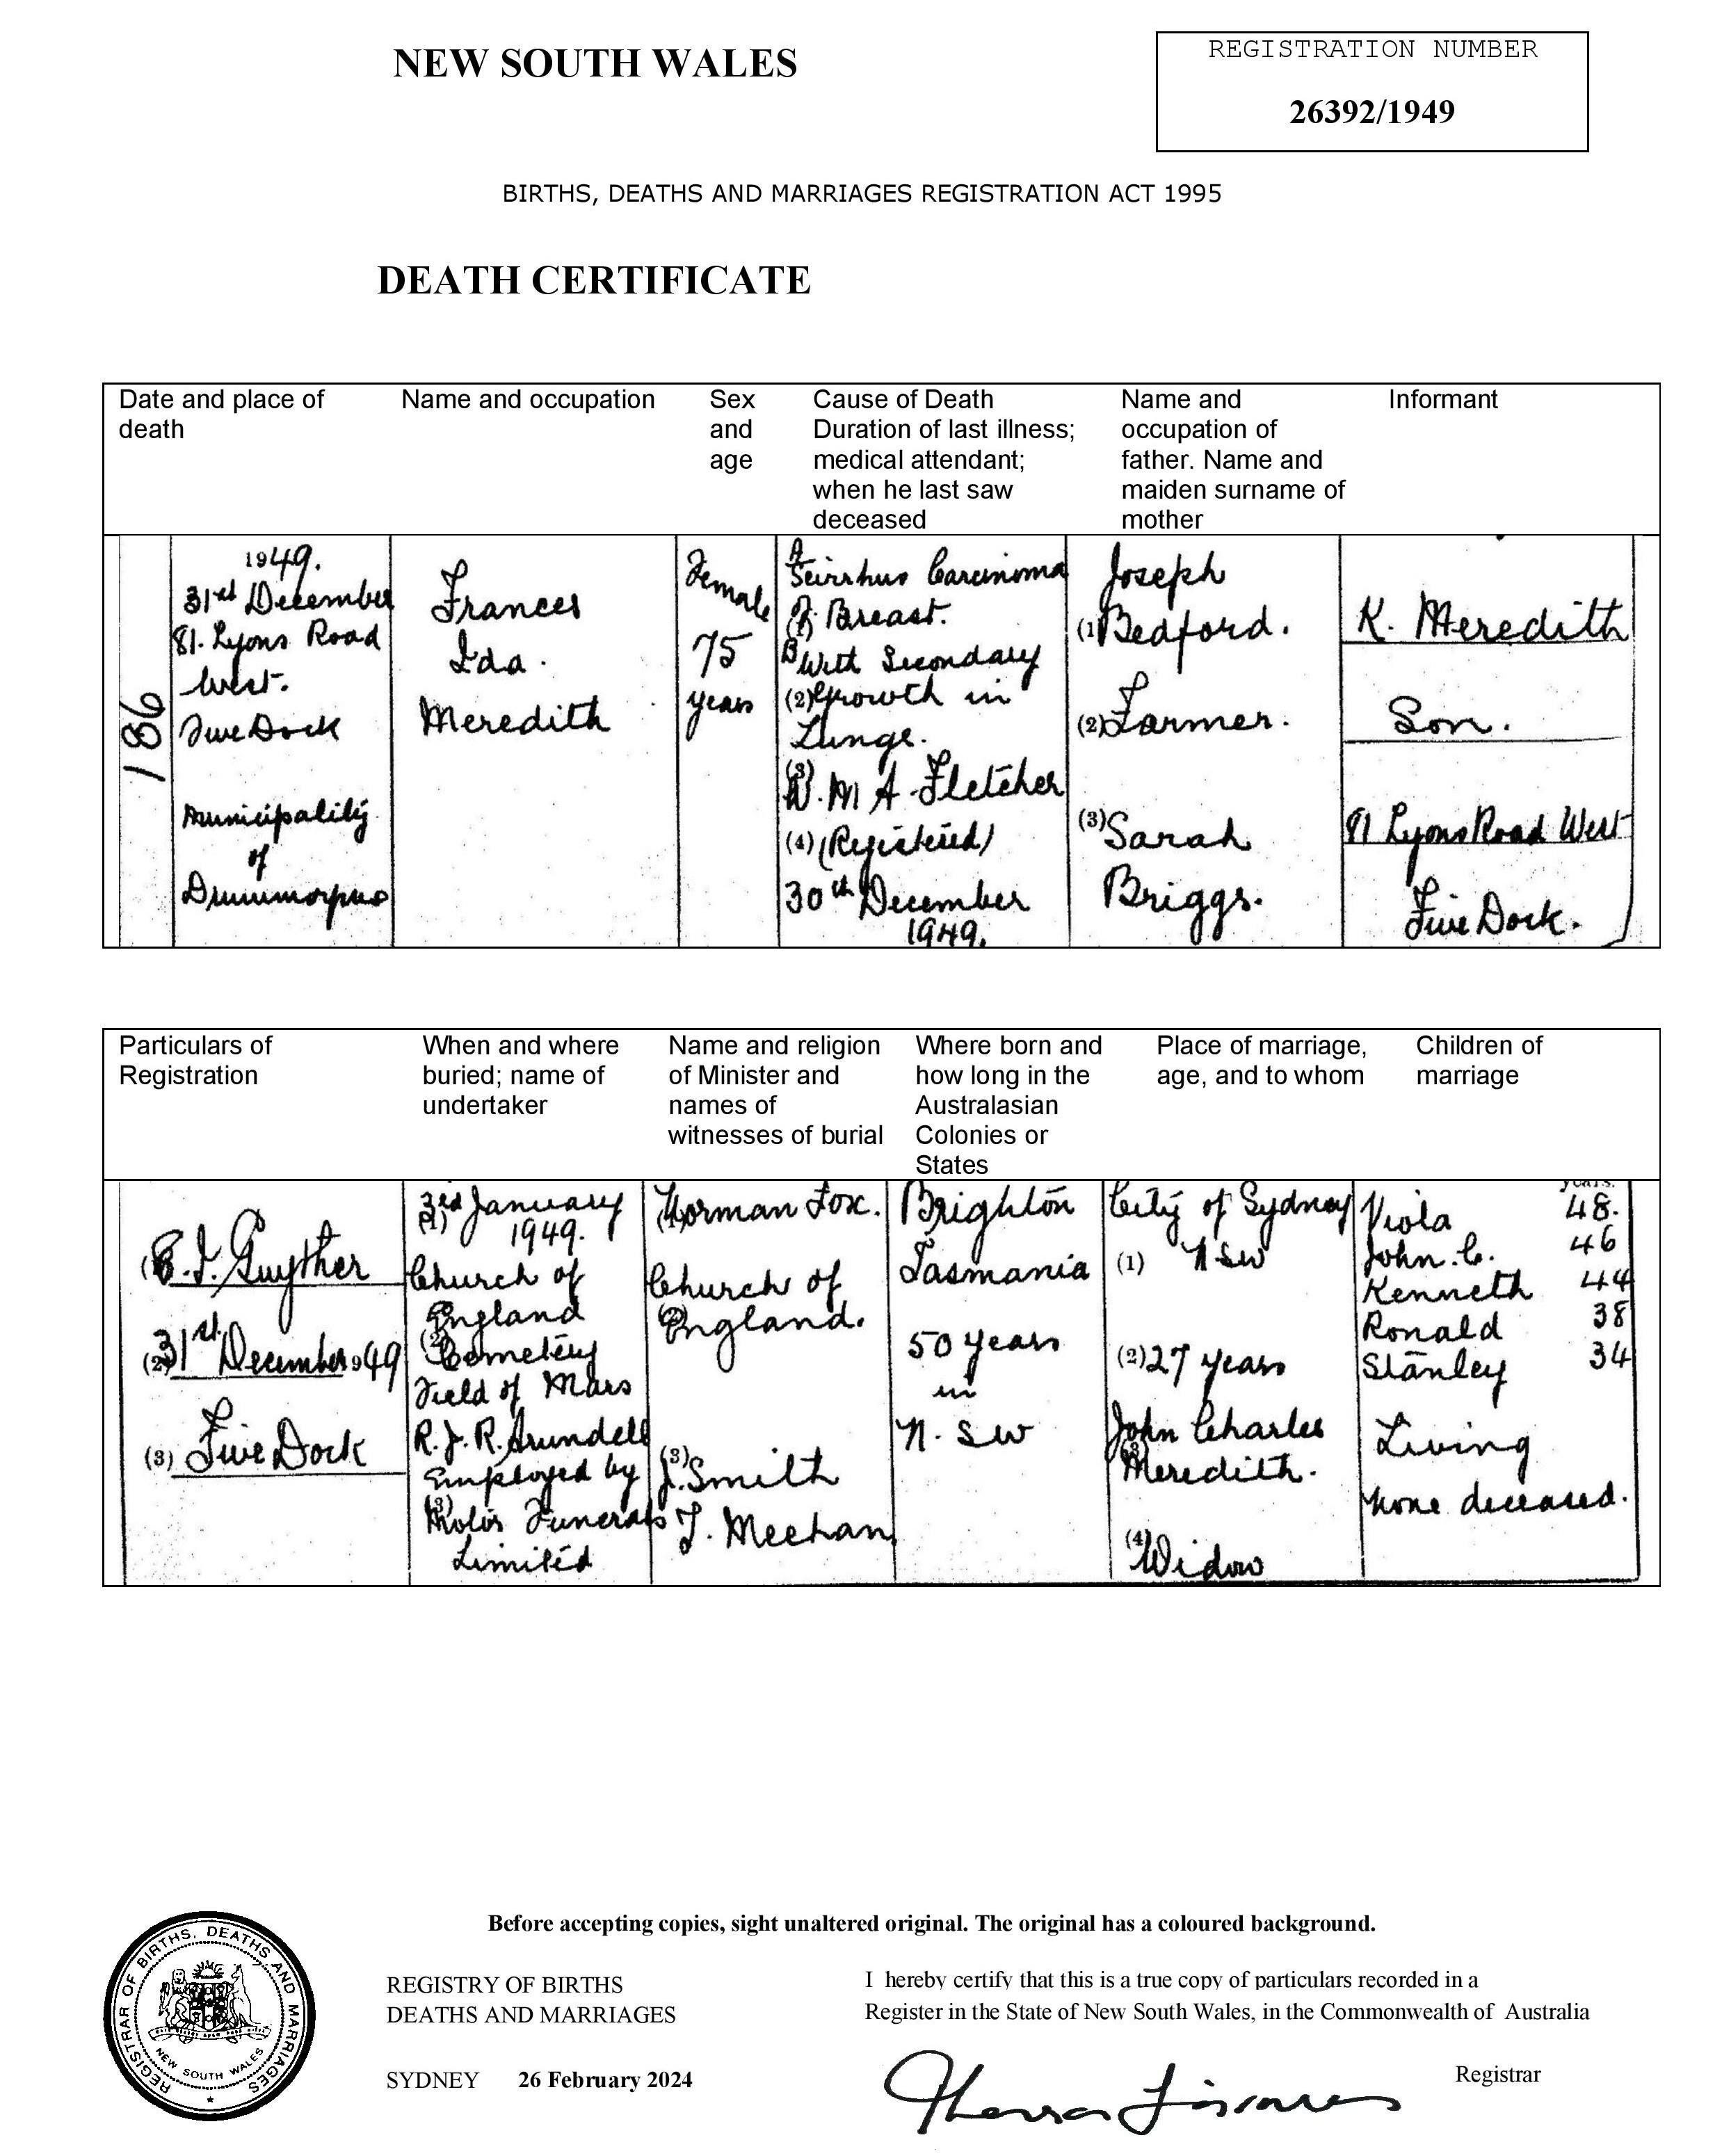 NEW SOUTH WALES
REGISTRATION NUMBER
26392/1949
BIRTHS, DEATHS AND MARRIAGES REGISTRATION ACT 1995
DEATH CERTIFICATE
Date and place of
death
Name and occupation
Sex
and
age
Cause of Death
Duration of last illness;
medical attendant;
when he last saw
deceased
Name and
occupation of
father. Name and
maiden surname of
mother
Informant
186
1949.
31st December
81. Lyons Road
West.
Five Dock
Municipality
of
Drummoyne
Frances
Ida.
Meredith
Female
75
years
A
Scirrhus Carcinoma
of Breast.
(1)
B With Secondary
(2) Growth in
Lungs.
(3)
W. M A. Fletcher
(4) (Registered)
30th December
1949.
Joseph
(1) Bedford.
(2) Farmer.
(3) Sarah
Briggs.
K. Meredith
Son.
81 Lyons Road West
Five Dock.
Particulars of
Registration
When and where
buried; name of
undertaker
Name and religion
of Minister and
names of
witnesses of burial
Where born and
how long in the
Australasian
Colonies or
States
Place of marriage,
age, and to whom
Children of
marriage
(1) Guyther
(2) 31st December 1949
(3) Five Dock
3rd January
(1)
1949.
Church of
England
(2)
Cemetery
Field of Mars
R. J. R. Arundell
Employed by
(3)
Funerals
Limited
(1) Norman Fox.
Church of
(2) England.
(3) J. Smith
T. Meehan
Brighton
Tasmania
50 years
in
N. SW
City of Sydney
(1) N SW
(2) 27 years
John Charles
(3)
Meredith.
(4)
Widow
years.
Viola 48.
John. C. 46
Kenneth 44
Ronald 38
Stanley 34
Living
None deceased.
Before accepting copies, sight unaltered original. The original has a coloured background.
REGISTRAR OF BIRTHS, DEATHS AND MARRIAGES
NEW SOUTH WALES
REGISTRY OF BIRTHS
DEATHS AND MARRIAGES
SYDNEY 26 February 2024
I hereby certify that this is a true copy of particulars recorded in a
Register in the State of New South Wales, in the Commonwealth of Australia
Registrar